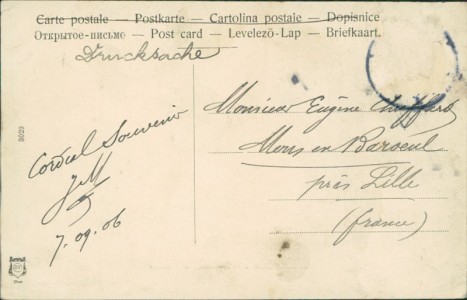 Carte postale — Postkarte — Cartolina postale — Dopisnice
Открытое-письмо — Post card — Levelező-Lap — Briefkaart.
Drucksache
Monsieur Eugène
Cordial Souvenir
Mons en Baroeul
près Lille
(France)
7.09.06